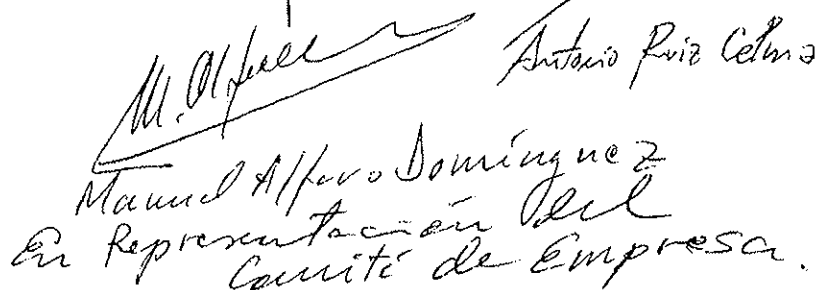 M. Alfaro
Antonio Ruiz Celma
Manuel Alfaro Domínguez
En Representación del
Comité de Empresa.